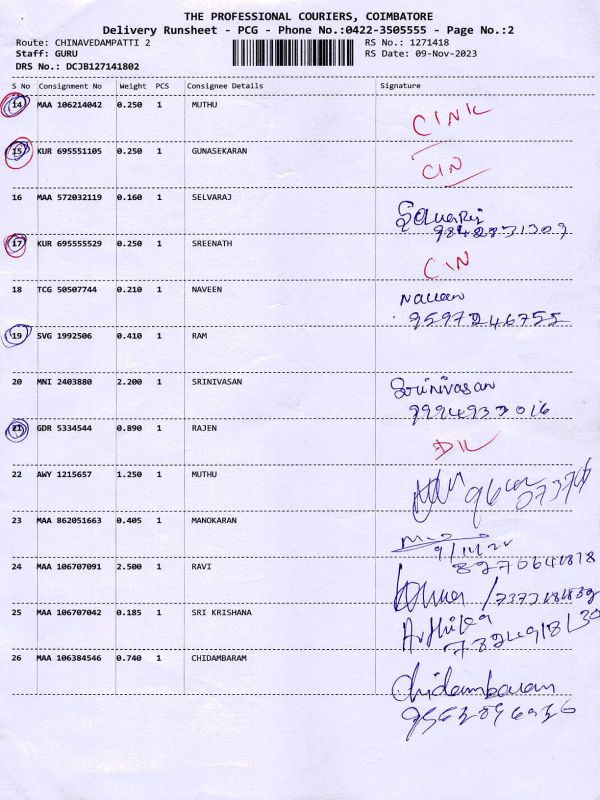 THE PROFESSIONAL COURIERS, COIMBATORE
Delivery Runsheet - PCG - Phone No.:0422-3505555 - Page No.:2
Route: CHINAVEDAMPATTI 2 RS No.: 1271418
Staff: GURU RS Date: 09-Nov-2023
DRS No.: DCJB127141802
S No Consignment No Weight PCS Consignee Details Signature
14 MAA 106214042 0.250 1 MUTHU
15 KUR 695551105 0.250 1 GUNASEKARAN
CIN
16 MAA 572032119 0.160 1 SELVARAJ
17 KUR 695555529 0.250 1 SREENATH
CIN
18 TCG 50507744 0.210 1 NAVEEN
9597246755
19 SVG 1992506 0.410 1 RAM
20 MNI 2403880 2.200 1 SRINIVASAN Srinivasan
9994933016
21 GDR 5334544 0.890 1 RAJEN
22 AWY 1215657 1.250 1 MUTHU
23 MAA 862051663 0.405 1 MANOKARAN
24 MAA 106707091 2.500 1 RAVI
8270641818
25 MAA 106707042 0.185 1 SRI KRISHANA
26 MAA 106384546 0.740 1 CHIDAMBARAM
Chidambaram